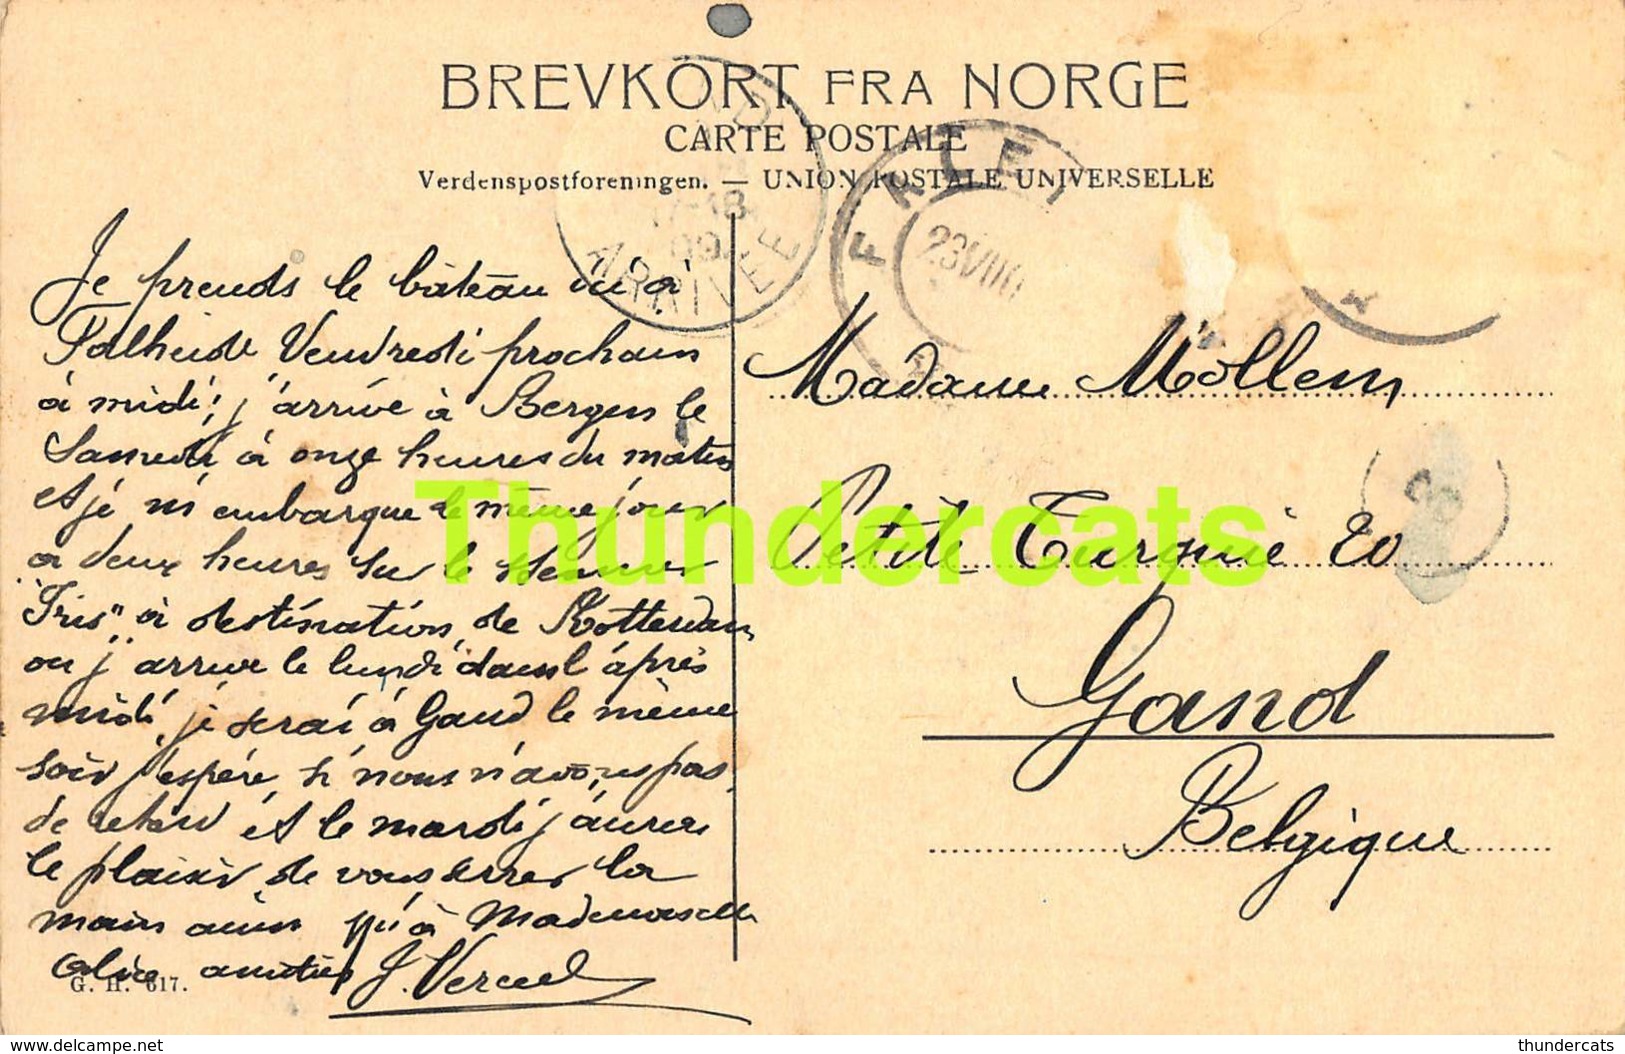 BREVKORT FRA NORGE
CARTE POSTALE
Verdenspostforeningen. — UNION POSTALE UNIVERSELLE
ARRIVÉE
09
23 VIII
Je prends le bâteau ici à
Vendredi prochain
à midi; j'arrive à Bergen le
Samedi à onze heures du matin
et je m'embarque le même jour
a deux heures sur le
"Iris" à destination de Rotterdam
ou j'arrive le lundi dans l'après
midi, je serai à Gand le même
soir j'espére, si nous n'avons pas
de retard et le mardi j'aurai
le plaisir de vous serrer la
main ainsi qu'à Mademoiselle
Alice amitiés J. Vercuel
G. H. 617.
Madame Mollem
Petite Turquie 20
Gand
Belgique
Thundercats
www.delcampe.net
thundercats